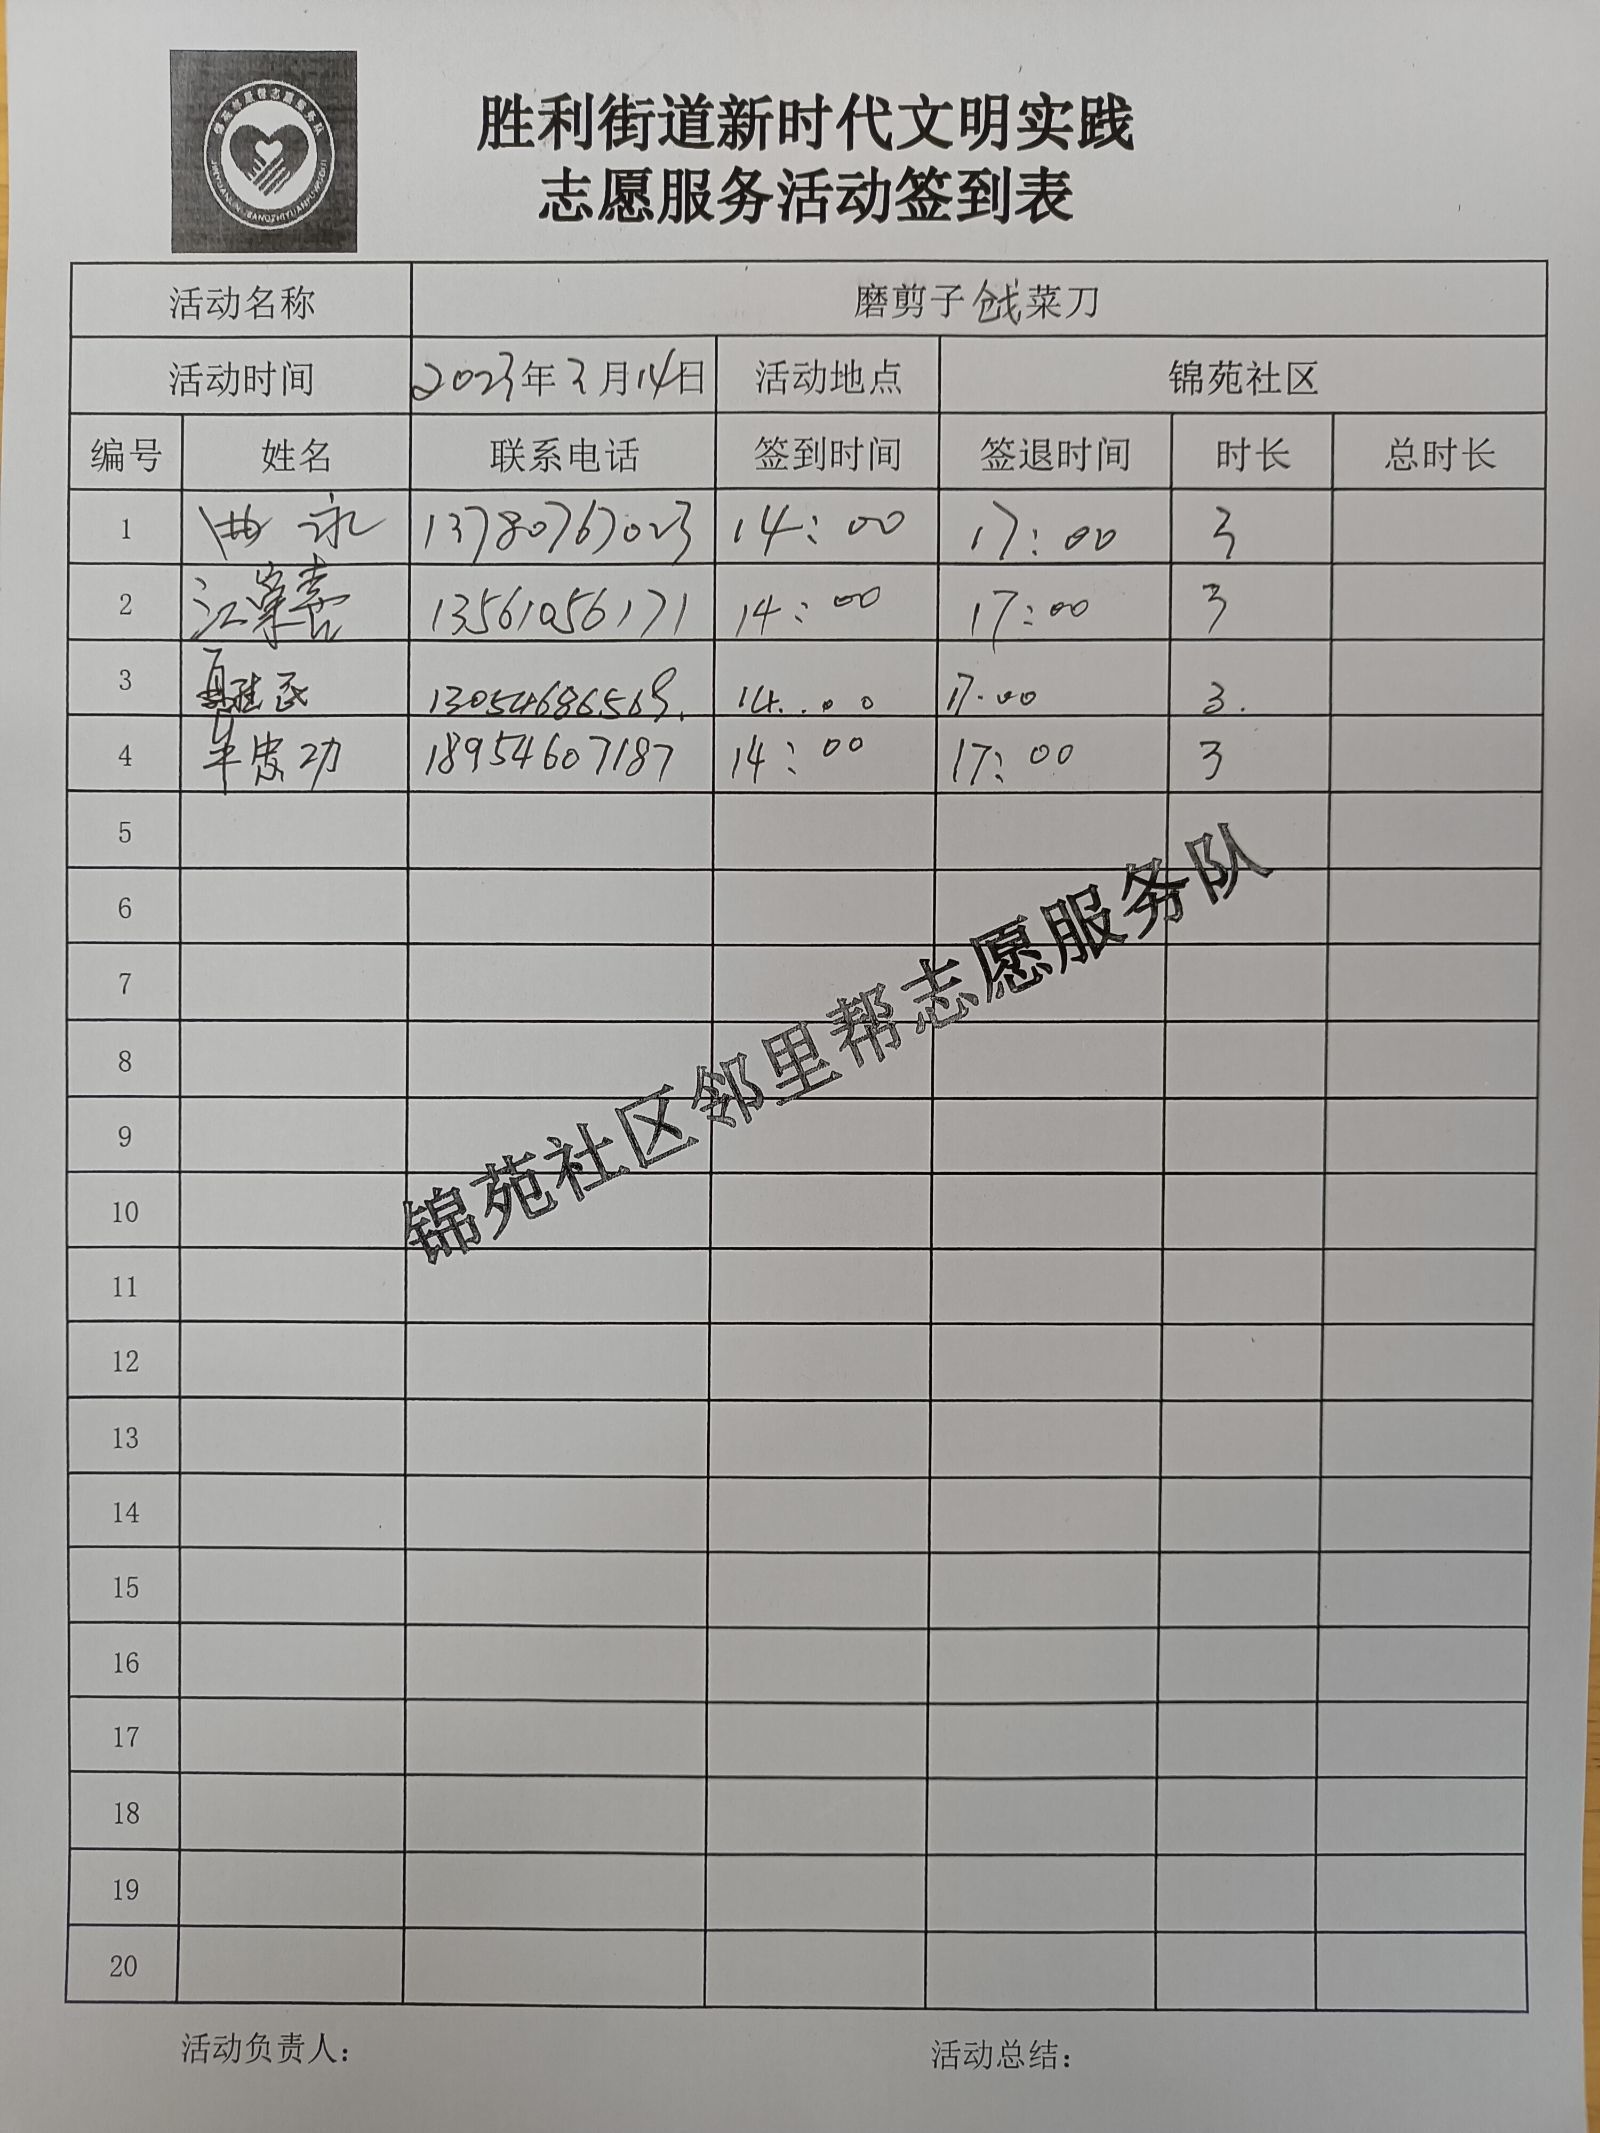 胜利街道新时代文明实践
志愿服务活动签到表
活动名称 磨剪子戗菜刀
活动时间 2023年3月14日 活动地点 锦苑社区
编号 姓名 联系电话 签到时间 签退时间 时长 总时长
1 曲永 13780767023 14:00 17:00 3
2 江 喜 13561056171 14:00 17:00 3
3 民 13054686569. 14:00 17:00 3.
4 功 18954607187 14:00 17:00 3
5
6
7
8
9
10
11
12
13
14
15
16
17
18
19
20
锦苑社区邻里帮志愿服务队
活动负责人:
活动总结: